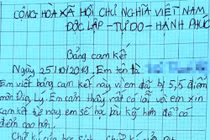 CỘNG HÒA XÃ HỘI CHỦ NGHĨA VIỆT NAM
ĐỘC LẬP - TỰ DO - HẠNH PHÚC
Bảng cam kết
Ngày 25/10/2019, Em tên là
Em viết bảng cam kết này vì em đã bị 5,5 điểm
môn Địa Lý. Em cảm thấy mất có lỗi với em xin
cam kết này em sẽ học bài kỹ hơn để có
điểm cao hơn.